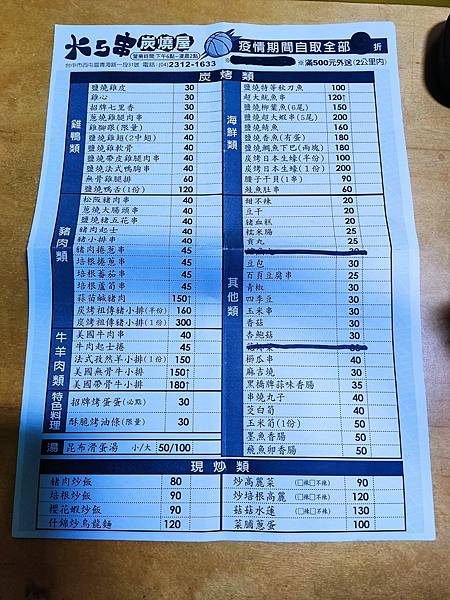 大ら串 炭燒屋
營業時間:下午6點~凌晨2點
疫情期間自取全部 折
台中市西屯區青海路一段31號 電話:(04)2312-1633
※滿500元外送(2公里內)
炭烤類
雞鴨類
鹽燒雞皮 30
雞心 30
招牌七里香 30
蔥燒雞腿肉串 40
雞腳跟(限量) 30
鹽燒雞翅(2中翅) 40
鹽燒雞軟骨 40
鹽燒帶皮雞腿肉串 40
鹽燒法式鴨胸串 40
無骨雞腿排 60
鹽燒鴨舌(1份) 120
豬肉類
松阪豬肉串 40
蔥燒大腸頭串 40
鹽燒豬五花串 40
豬肉起士 40
豬小排串 40
豬肉捲蔥串 45
培根捲蔥串 45
培根蕃茄串 45
培根蘆筍串 45
蒜苗鹹豬肉 150↑
炭烤祖傳豬小排(半份) 160
炭烤祖傳豬小排(1份) 300
牛羊肉類
美國牛肉串 40
牛肉起士捲 45
法式孜然羊小排(1份) 150
美國無骨牛小排 150↑
美國帶骨牛小排 180↑
特色料理
招牌烤蛋蛋(必點) 30
酥脆烤油條(限量) 30
湯
昆布滑蛋湯 小/大 50/100
海鮮類
鹽燒特等秋刀魚 100
超大魷魚串 120↑
鹽燒柳葉魚(6尾) 150
鹽燒超大蝦串(5尾) 200
鹽燒鯖魚 160
鹽燒香魚(有蛋) 180
鹽燒鯛魚下巴(兩塊) 180
炭烤日本生蠔(半份) 100
炭烤日本生蠔(1份) 200
腰子干貝(1串) 90
鮭魚肚串 60
其他類
甜不辣 20
豆干 20
豬血糕 20
糯米腸 25
貢丸 25
豆包 30
百頁豆腐串 25
青椒 30
四季豆 30
玉米串 30
香菇 30
杏鮑菇 30
櫛瓜串 40
麻吉燒 30
黑橋牌蒜味香腸 35
串燒丸子 40
茭白筍 40
玉米筍(1份) 50
墨魚香腸 50
飛魚卵香腸 50
現炒類
豬肉炒飯 80
培根炒飯 90
櫻花蝦炒飯 90
什錦炒烏龍麵 120
炒高麗菜 (□辣□不辣) 90
炒培根高麗 (□辣□不辣) 120
菇菇水蓮 (□辣□不辣) 130
菜脯蔥蛋 100